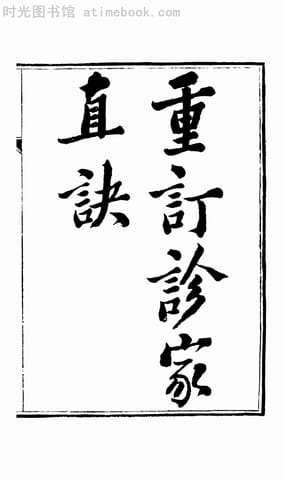 时光图书馆 atimebook.com
重訂診家
直訣